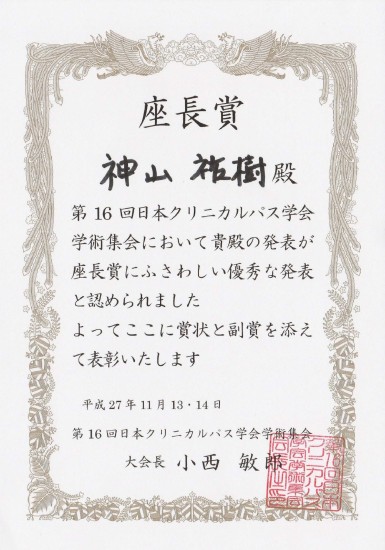 座長賞
神山 祐樹殿
第16回日本クリニカルパス学会
学術集会において貴殿の発表が
座長賞にふさわしい優秀な発表
と認められました
よってここに賞状と副賞を添え
て表彰いたします
平成27年11月13・14日
第16回日本クリニカルパス学会学術集会
大会長 小西 敏郎